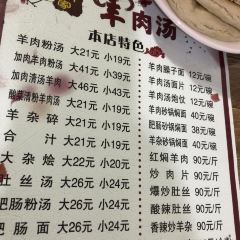 羊肉汤
本店特色
羊肉粉汤 大21元 小19元
加肉羊肉粉汤 大41元 小39元
加肉清汤羊肉 大46元 小43元
酸菜清粉羊肉汤 大21元 小19元
羊杂碎 大21元 小19元
合汁 大21元 小19元
大杂烩 大22元 小20元
肚丝汤 大26元 小24元
肥肠粉汤 大26元 小24元
肥肠面 大26元 小24元
羊肉臊子面 12元/碗
羊肉汤面片 12元/碗
羊肉汤炮仗 12元/碗
羊肉砂锅焖面 40元/碗
肥肠砂锅焖面 40元/碗
羊杂砂锅焖面 40元/碗
红焖羊肉 90元/斤
炒肉片 90元/斤
爆炒肚丝 90元/斤
酸辣肚丝 90元/斤
香辣炒羊杂 90元/斤